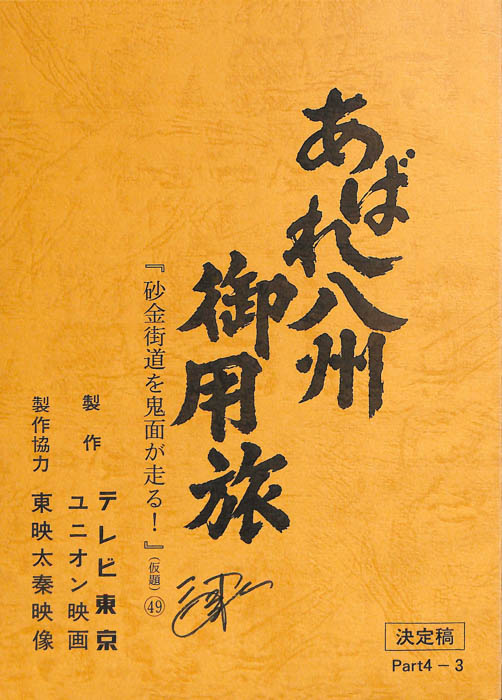 あばれ八州
御用旅
『砂金街道を鬼面が走る！』（仮題）㊾
製作 テレビ東京
ユニオン映画
製作協力 東映太秦映像
決定稿
Part4－3